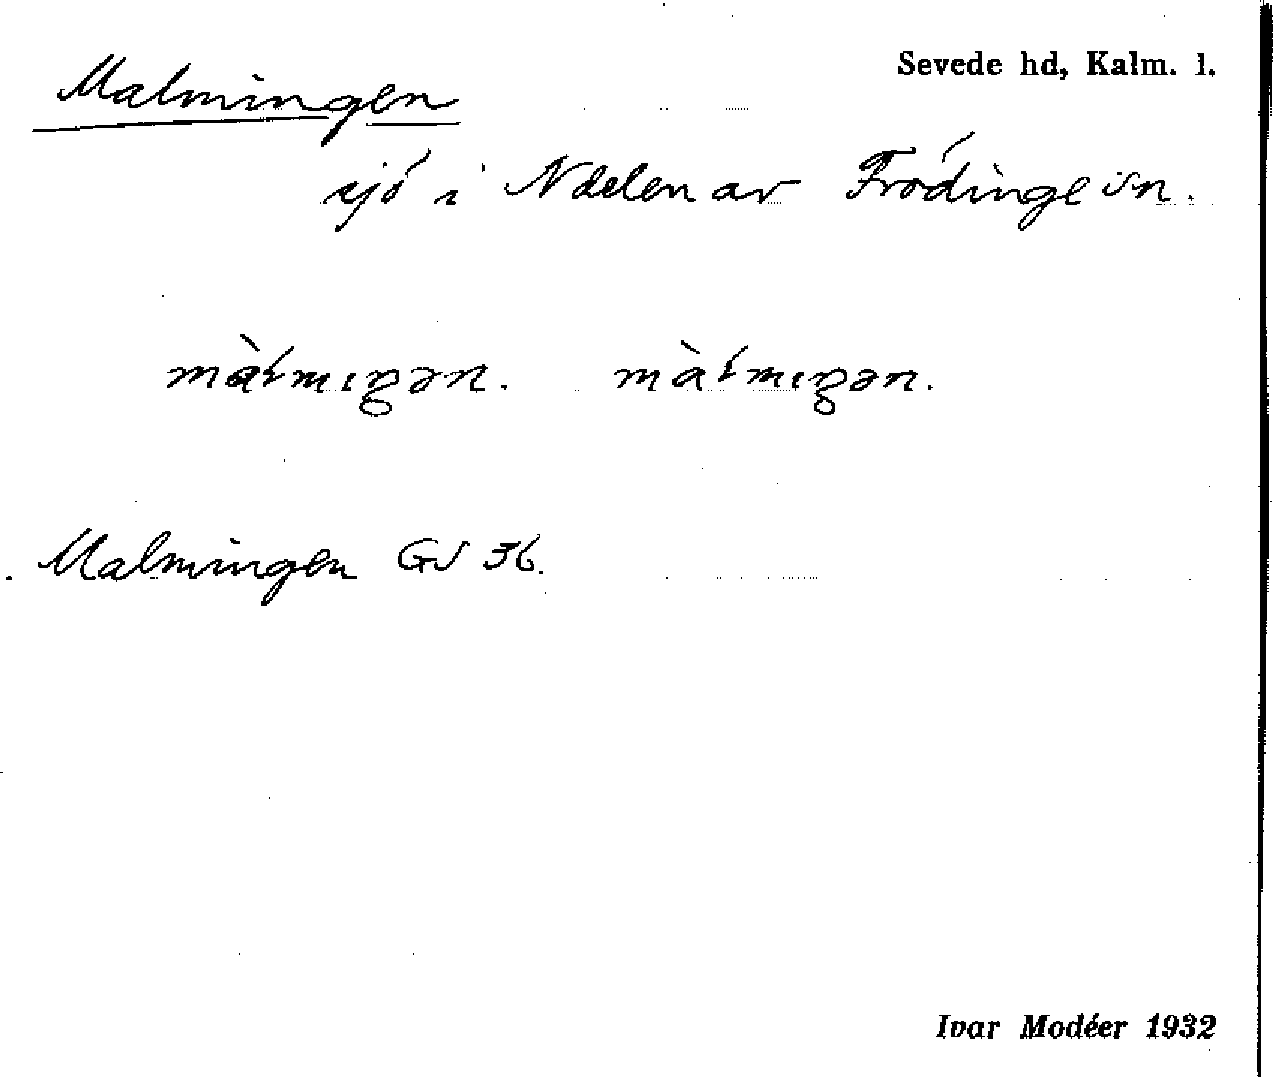 Sevede hd, Kalm. l.
Malmingen
sjö i Ndelen av Frödinge sn.
màłmıŋən. màłmıŋən.
Malmingen GS 36.
Ivar Modéer 1932